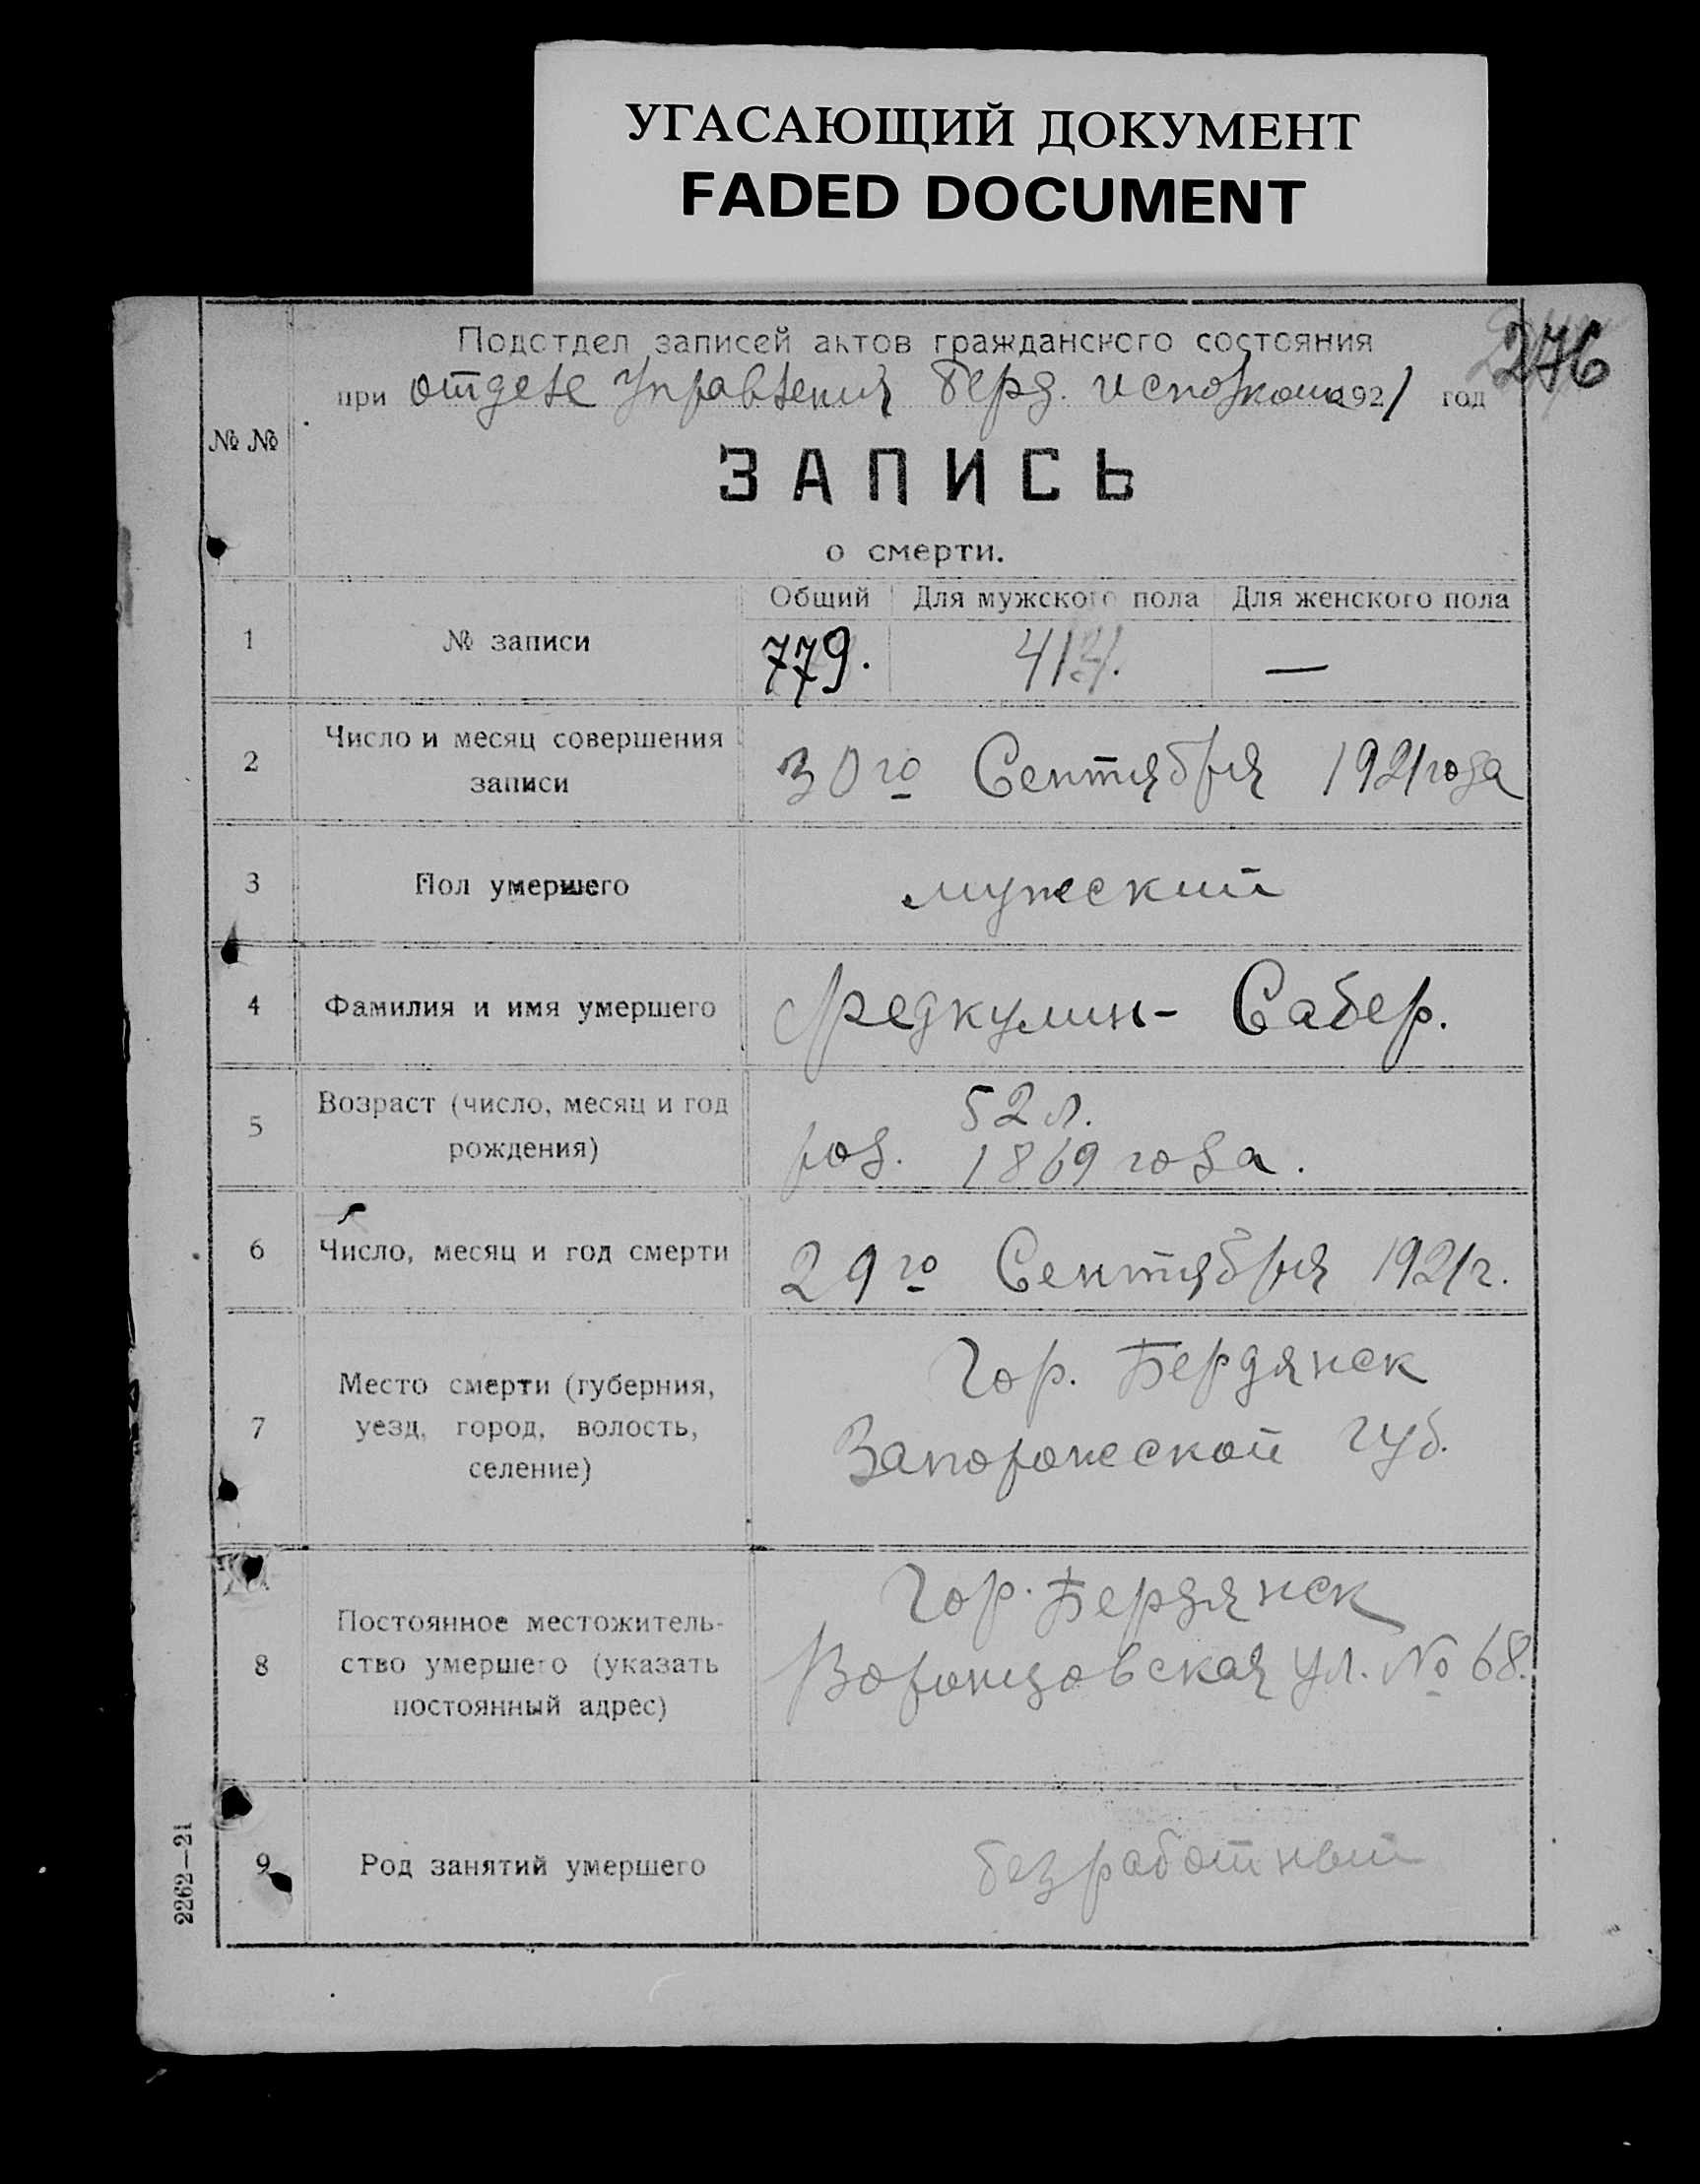 УГАСАЮЩИЙ ДОКУМЕНТ
FADED DOCUMENT
276
Подотдел записей актов гражданского состояния
при отделе Управления Берд. исполкома 1921 год
№ №
ЗАПИСЬ
о смерти.
Общий Для мужского пола Для женского пола
1 № записи 779. —
2 Число и месяц совершения
записи
30го Сентября 1921 года
3 Пол умершего мужеский
4 Фамилия и имя умершего Сабер.
5 Возраст (число, месяц и год
рождения)
52 л.
род. 1869 года.
6 Число, месяц и год смерти 29го Сентября 1921 г.
7 Место смерти (губерния,
уезд, город, волость,
селение)
Гор. Бердянск
Запорожеской губ.
8 Постоянное местожитель-
ство умершего (указать
постоянный адрес)
Гор. Бердянск
Воронцовская ул. № 68.
9 Род занятий умершего безработный
2262—21